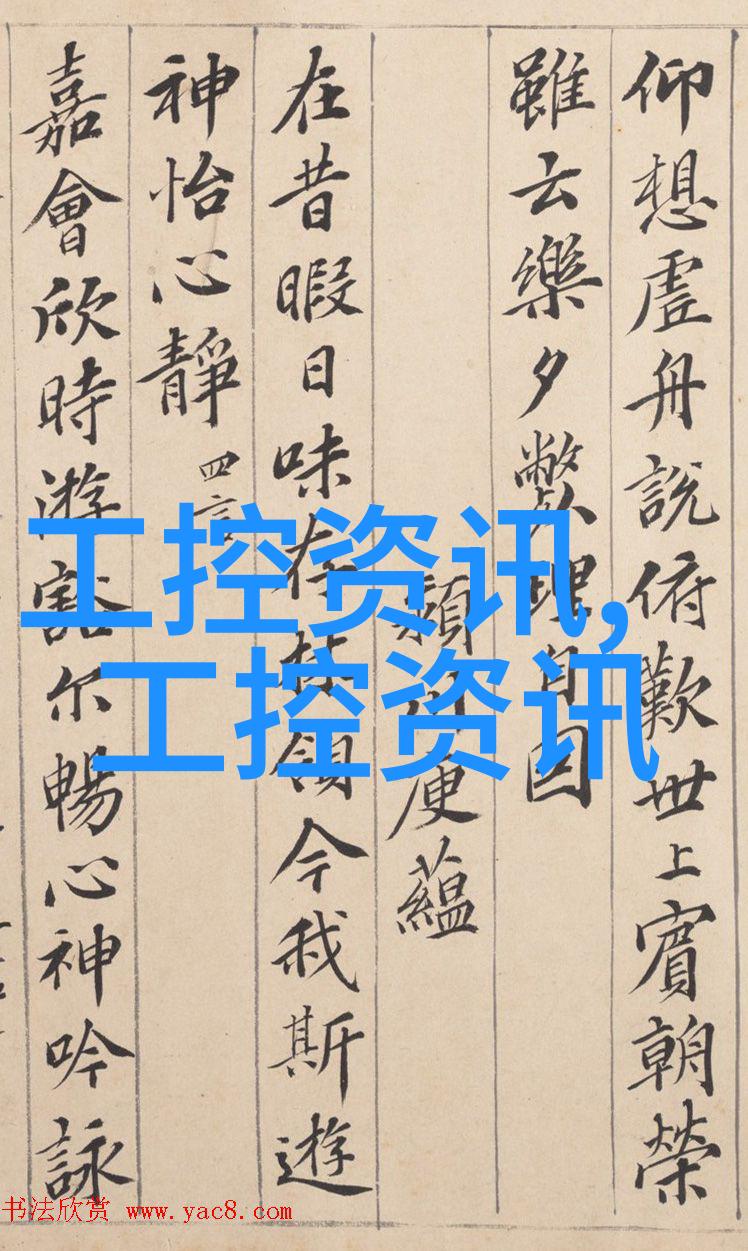 仰想虛舟說俯歎世上賓朝榮
雖云樂夕斃理自因
頴川庾蘊
在昔暇日味存林領今我斯遊
神怡心靜 四言
嘉會欣時游豁尔暢心神吟詠
工控资讯,
工控资讯
书法欣赏 www.yac8.com